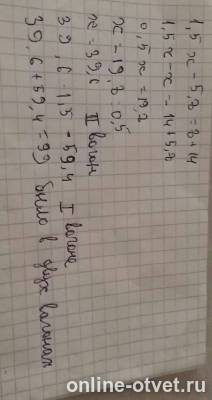 1,5x - 5,8 = x + 14
1,5x - x = 14 + 5,8
0,5x = 19,8
x = 19,8 : 0,5
x = 39,6 II вагон
39,6 · 1,5 = 59,4 I вагоне
39,6 + 59,4 = 99 было в двух вагонах
online-otvet.ru